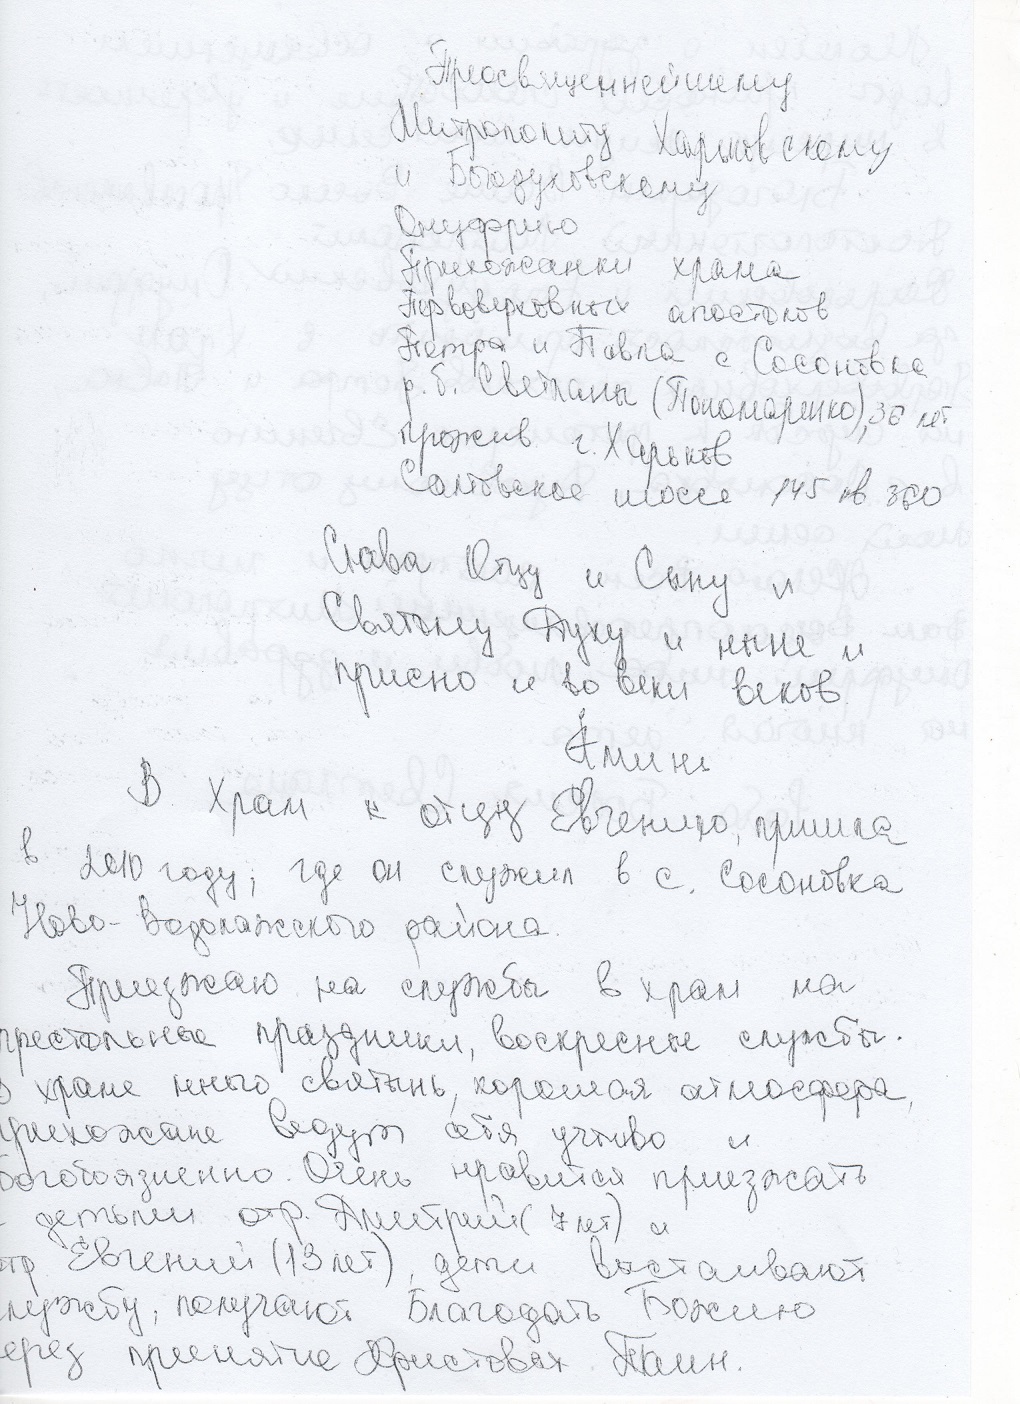 Преосвященнейшему
Митрополиту Харьковскому
и Богодуховскому
Онуфрию
Прихожанки храма
Первоверховных апостолов
Петра и Павла с. Сосоновка
р.б. Светланы (Пономаренко), 36 лет
прожив г. Харьков
Салтовское шоссе 145 кв 360
Слава Отцу и Сыну и
Святому Духу и ныне и
присно и во веки веков.
Аминь.
В храм к отцу Евгению, пришла
в 2010 году, где он служил в с. Сосоновка
Ново-Водолажского района.
Приезжаю на службы в храм на
престольные праздники, воскресные службы.
В храме много святынь, хорошая атмосфера,
прихожане ведут себя учтиво и
богобоязненно. Очень нравится приезжать
с детьми отр. Дмитрий (7 лет) и
отр Евгений (13 лет), дети выстаивают
службу, получают Благодать Божию
через принятие Христовых Таин.